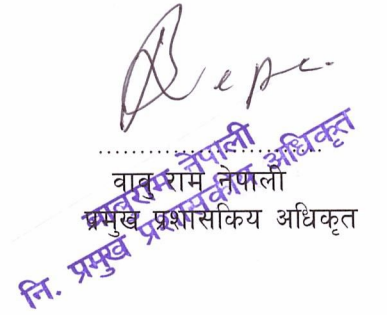 ..............................
वाबु राम नेपाली
प्रमुख प्रशासकिय अधिकृत
बाबुराम नेपाली
नि. प्रमुख प्रशासकीय अधिकृत